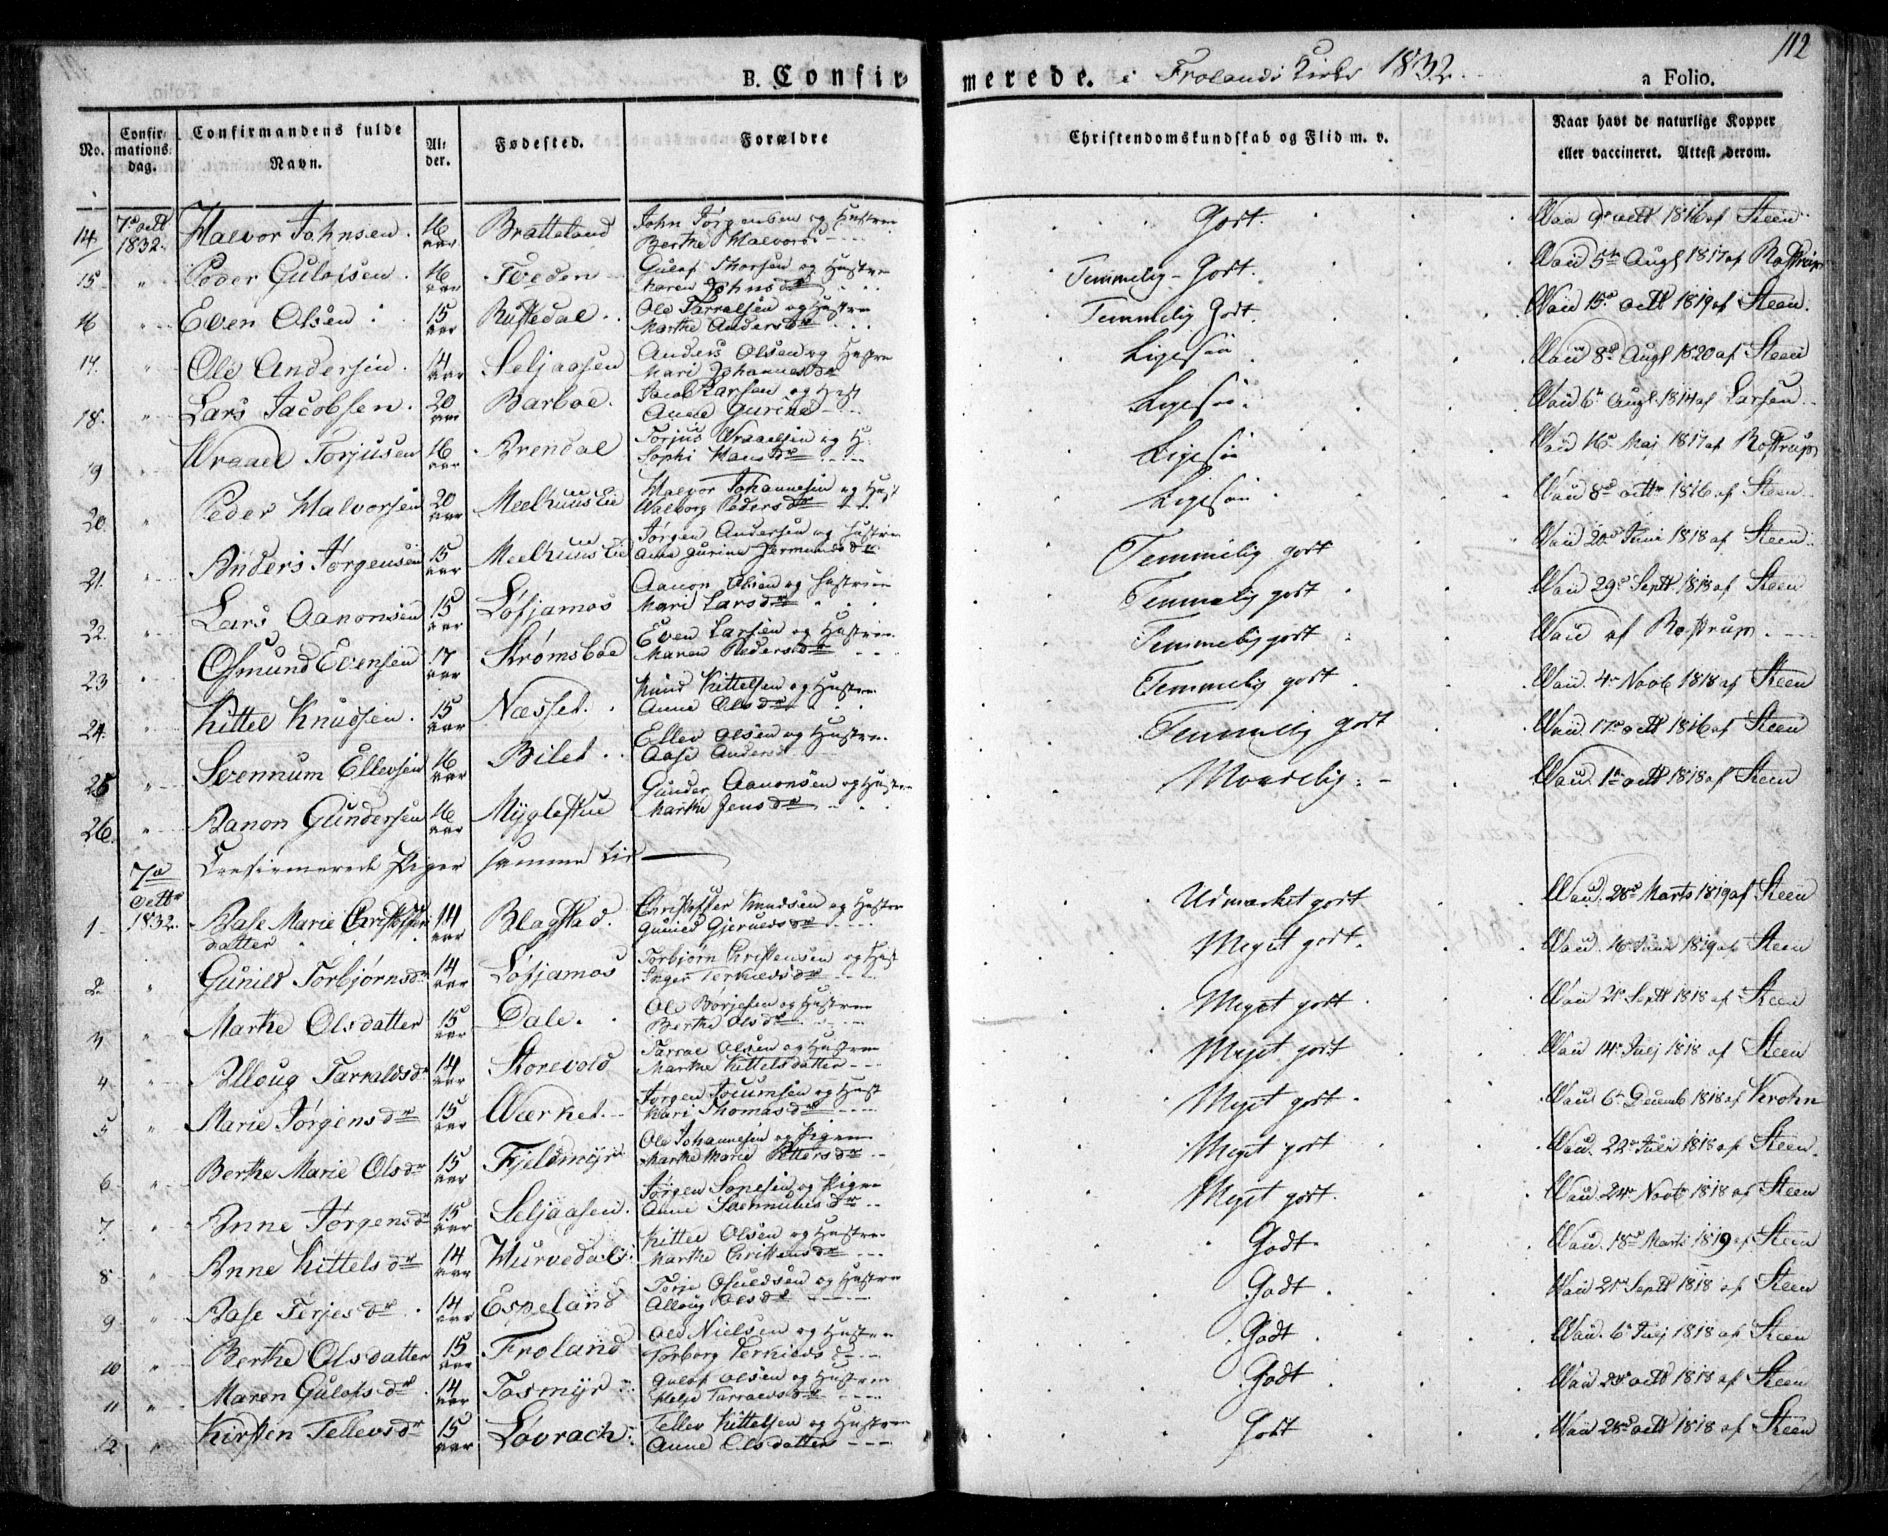 112
B. Confirmerede. i Frolands Kirke 1832.
a Folio.
No.
Confirmations dag.
Confirmandens fulde Navn.
Alder.
Fødested.
Forældre
Christendomskundskab og Flid m. v.
Naar havt de naturlige Kopper eller vaccineret. Attest derom.
14 7de octt 1832. Halvor Johnsen. 16 aar Bratteland John Jørgensen og Hustrue Berthe Halvorsd Godt. Vaii 9de octt 1816 af Steen
15 " Peder Gulofsen. 16 aar Tveden Gulof Thorsen og Hustrue Karen Johnsdr Temmelig Godt. Vaii 5te Augt 1817 af Rostrup
16 " Even Olsen. 15 aar Rustedal. Ole Tarralsen og Hustrue Marthe Andersdr Temmelig Godt. Vaii 15de octt 1819 af Steen.
17. " Ole Andersen. 14 aar Seljaasen Anders Olsen og Hustrue Mari Johannesdr Ligesaa Vaii 8de Augt 1820 af Steen
18. " Lars Jacobsen. 20 aar Barboe. Jacob Larsen og Hust Anne Gurine Ligesaa. Vaii 6te Augt 1814 af Larsen
19 " Wraael Torjusen 16 aar Brendal Torjus Wraaelsen og H. Sophi Hansdr Ligesaa Vaii 16de Maj 1817 af Rostrup
20. " Peder Halvorsen 20 aar Meelhuus Eie Halvor Johannesen og Hust Walborg Pedersdr Ligesaa Vaii 8de octt 1816 af Steen
21. " Anders Jørgensen 15 aar Meelhuus Eie Jørgen Andersen og Hustrue Ane Gurine Germundsdr Temmelig godt Vaii 20de Juni 1818 af Steen
22. " Lars Aanonsen 15 aar Løfjamos Aanon Olsen og Hustrue Mari Larsdr Temmelig godt Vaii 29de Septt 1818 af Steen
23 " Osmund Evensen 17 aar Strømsboe Even Larsen og Hustrue Maren Pedersdr Temmelig godt Vaii af Rostrup.
24. " Kittel Knudsen. 15 aar Næsset. Knud Kittelsen og Hustrue Anne Olsdr Temmelig godt Vaii. 4de Novb 1818 af Steen
25 " Svennum Ellevsen 16 aar Bilet. Ellev Olsen og Hustrue Aase Anders Temmelig godt Vaii 17de octt 1816 af Steen
26. " Aanon Gundersen 16 aar Myglestue Gunder Aanonsen og Hustrue Marthe Jensdr Maadelig. Vaii. 1te octt 1818 af Steen
Confirmerede Piger samme tid
1. 7de octtr 1832. Aase Marie Christoffersdatter 14 aar Blagstad. Christoffer Knudsen og Hustrue Gunild Gjeruldsdr Udmærket godt Vaii. 28de Marts 1819 af Steen
2. " Gunild Torbjørnsdr 14 aar Løfjamos Torbjørn Christensen og Hust Inger Terkildsdr Meget godt. Vaii. 16de Juni 1819 af Steen
3. " Marthe Olsdatter 15 aar Dale. Ole Børjesen og Hustrue Berthe Olsdr Meget godt Vaii 21de Septt 1818 af Steen
4. " Alloug Tarraldsdr 14 aar Storevold Tarral Olsen og Hustrue Marthe Kittelsdatter Meget godt Vaii 14de Julj 1818 af Steen
5 " Marie Jørgensdr 15 aar Værket. Jørgen Jocumsen og Hust Kari Thomasdr Meget godt Vaii 6te Decemb 1818 af Krohn
6. " Berthe Marie Olsdr 15 aar Fjeldmyr Ole Johannesen og Pigen Marthe Marie Pettersdr Meget godt Vaii. 22de Julii 1818 af Steen.
7. " Anne Jørgensdr 15 aar Seljaasen. Jørgen Sonesen og Pigen Anne Svennumsdr Meget godt. Vaii. 24de Novb 1818 af Steen
8 " Anne Kittelsdr 14 aar Hurvedals. Kittel Olsen og Hustrue Marthe Christensdr Godt. Vaii. 18de Marts 1819 af Steen
9 " Aase Terjesdr. 14 aar Espeland Torje Osuldsen og Hustrue Alloug Olsdr Godt Vaii 21de Septt 1818 af Steen
10 " Berthe Olsdatter 15 aar Froland Ole Nielsen og Hustrue Torborg Terkildsd Godt Vaii. 6te Julj 1818 af Steen
11 " Maren Gulofsdr. 14 aar Tosmyr Gulof Olsen og Hustrue Helje Tarraldsdr Godt Vaii 23de octt 1818 af Steen
12. " Kirsten Tellevsdr 15 aar Løvrach. Tellev Kittelsen og Hustrue Anne Olsdatter Godt Vaii 28de octt 1818 af Steen